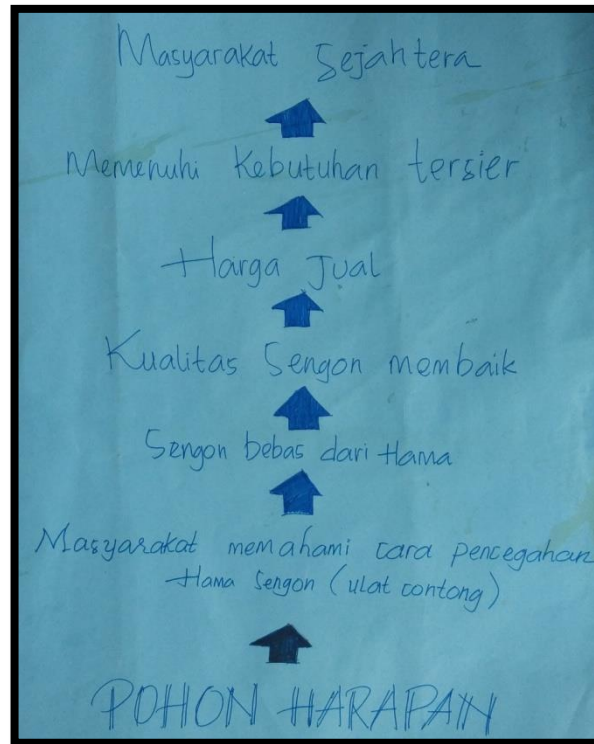 Masyarakat Sejahtera
Memenuhi Kebutuhan tersier
Harga Jual
Kualitas Sengon membaik
Sengon bebas dari Hama
Masyarakat memahami cara pencegahan
Hama Sengon (ulat contong)
POHON HARAPAN